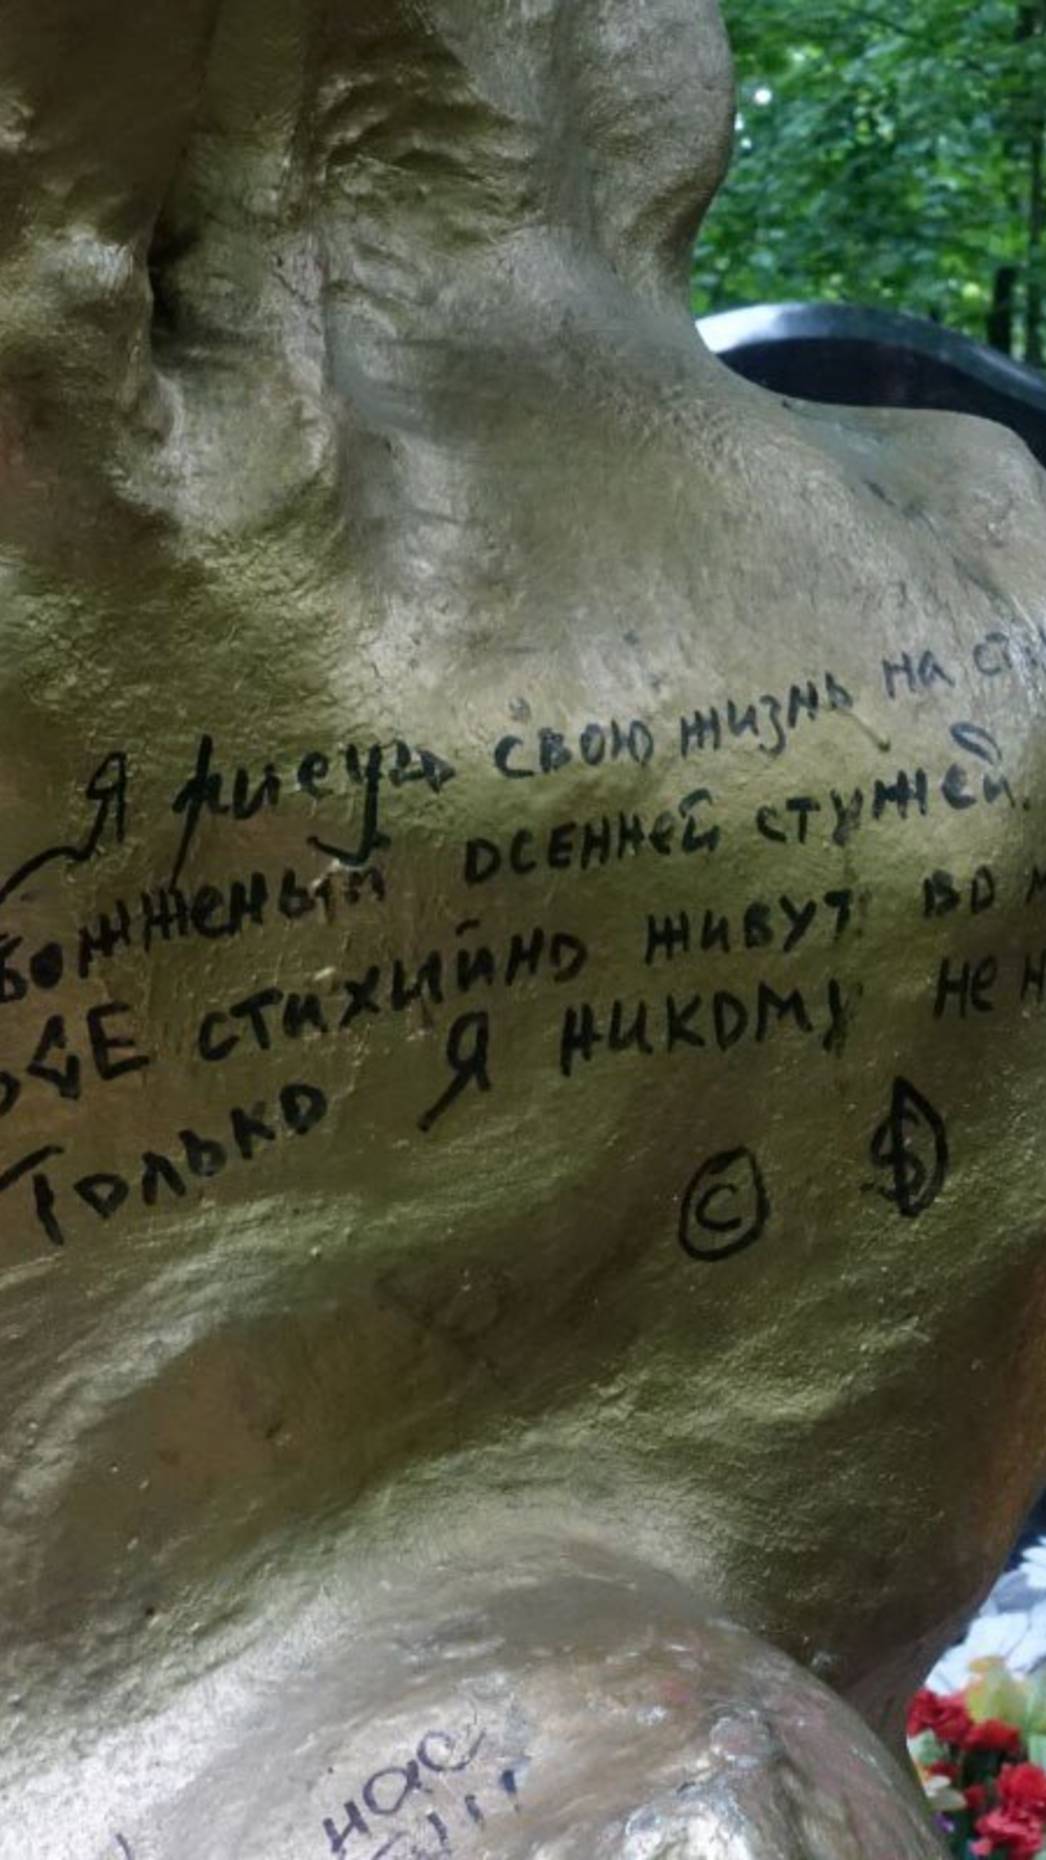 Я рисую свою жизнь на ст
обожженый осенней стужей.
где стихийно живут во м
Только я никому не н
© $
нас
!!!